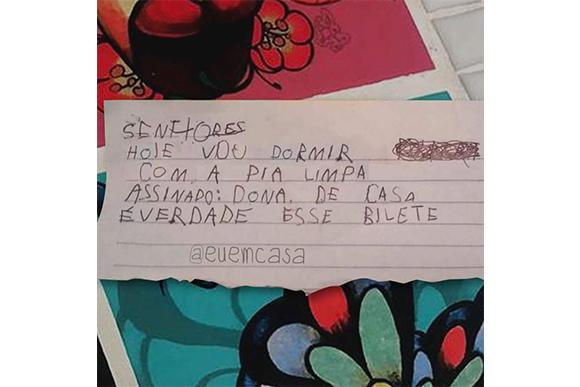 SENHORES
HOJE VOU DORMIR
COM A PIA LIMPA
ASSINADO: DONA. DE CASA
É VERDADE ESSE BILETE
@euemcasa